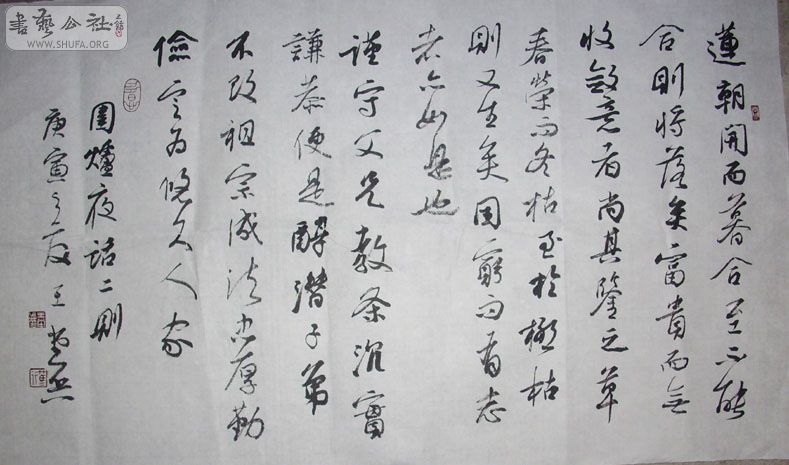 蓮朝開而暮合至不能
合則將落矣富貴而無
收斂意者尚其鑒之草
春榮而冬枯至於極枯
則又生矣困窮而有志
者亦如是也
謹守父兄教条沉實
謙恭便是醇潛子弟
不改祖宗成法忠厚勤
儉定为悠久人家
圍爐夜話二則
庚寅之夏王
書藝公社
WWW.SHUFA.ORG